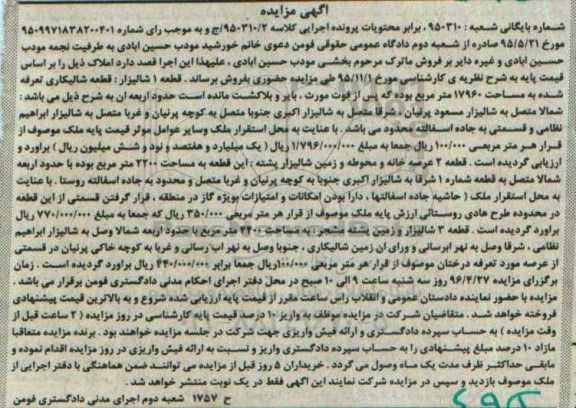 آگهی مزایده
شماره بایگانی شعبه : ۹۵۰۳۱۰ ، برابر محتویات پرونده اجرایی کلاسه ۹۵۰۳۱۰/۲/ج و به موجب رای شماره ۹۵۰۹۹۷۱۸۳۸۲۰۰۴۰۱
مورخ ۹۵/۵/۲۱ صادره از شعبه دوم دادگاه عمومی حقوقی فومن دعوی خانم خورشید مودب حسین ابادی به طرفیت نجمه مودب
حسین ابادی و غیره دایر بر فروش ماترک مرحوم بخشی مودب حسین ابادی ، علیهذا این اجرا قصد دارد املاک ذیل را بر اساس
قیمت پایه به شرح نظریه ی کارشناسی مورخ ۹۵/۱۱/۱ طی مزایده حضوری بفروش برساند . قطعه ۱ شالیزار : قطعه شالیکاری تعرفه
شده به مساحت ۱۷۹۶۰ متر مربع بوده که پس از فوت مورث ، بایر و بلاکشت مانده است حدود اربعه ان به شرح ذیل می باشد :
شمالا متصل به شالیزار مسعود پرنیان ، شرقا متصل به شالیزار اکبری جنوبا متصل به کوچه پرنیان و غربا متصل به شالیزار ابراهیم
نظامی و قسمتی به جاده اسفالته محدود می باشد . با عنایت به محل استقرار ملک وسایر عوامل موثر قیمت پایه ملک موصوف از
قرار هر متر مربعی ۱۰۰/۰۰۰ ریال جمعا به مبلغ ۱/۷۹۶/۰۰۰/۰۰۰ ریال ( یک میلیارد و هفتصد و نود و شش میلیون ریال ) براورد و
ارزیابی گردیده است . قطعه ۲ عرصه خانه و محوطه و زمین شالیزار پشته : این قطعه به مساحت ۲۲۰۰ متر مربع بوده با حدود اربعه
شمالا متصل به قطعه شماره ۱ شرقا به شالیزار اکبری جنوبا به کوچه پرنیان و غربا متصل و محدود به جاده اسفالته روستا . با عنایت
به محل استقرار ملک ( حاشیه جاده اسفالتها ، دارا بودن امکانات و امتیازات بویژه گاز در منطقه ، قرار گرفتن قسمتی از این قطعه
در محدوده طرح هادی روستائی ارزش پایه ملک موصوف از قرار هر متر مربعی ۳۵۰/۰۰۰ ریال که جمعا به مبلغ ۷۷۰/۰۰۰/۰۰۰ ریال
براورد گردیده است . قطعه ۳ شالیزار و زمین پشته مشجر به مساحت ۴۴۰۰ متر مربع با حدود اربعه شمالا وصل به شالیزار ابراهیم
نظامی ، شرقا وصل به نهر ابرسانی و ورای ان زمین شالیکاری ، جنوبا وصل به نهر اب رسانی و غربا به کوچه خاکی پرنیان در قسمتی
از عرصه مورد تعرفه درختان موصوف از قرار هر متر مربعی ۱۰۰/۰۰۰ ریال جمعا برابر ۴۴۰/۰۰۰/۰۰۰ ریال براورد گردیده است . زمان
برگزاری مزایده روز سه شنبه ۹۶/۴/۲۷ ساعت ۹ الی ۱۰ صبح در محل دفتر اجرای احکام مدنی دادگستری فومن برقرار می باشد .
مزایده با حضور نماینده دادستان عمومی و انقلاب راس ساعت مقرر از قیمت پایه ارزیابی شده شروع و به بالاترین قیمت پیشنهادی
فروخته خواهد شد . متقاضیان شرکت در مزایده موظف به واریز ۱۰ درصد قیمت پایه کارشناسی در روز مزایده ( ۲ ساعت قبل از
وقت مزایده ) به حساب سپرده دادگستری و ارائه فیش واریزی جهت شرکت در جلسه مزایده خواهند بود . برنده مزایده متعاقبا
مازاد ۱۰ درصد مبلغ پیشنهادی را به حساب سپرده دادگستری واریز و نسبت به ارائه فیش واریزی در روز مزایده اقدام نموده و
مابقی حداکثر ظرف مدت یک ماه وصول می گردد . خریداران ۵ روز قبل از مزایده می توانند ضمن هماهنگی با دفتر اجرایی از
ملک موصوف بازدید و سپس در مزایده شرکت نمایند این آگهی فقط در یک نوبت منتشر خواهد شد .
ح ۱۷۵۷ شعبه دوم اجرای مدنی دادگستری فومن